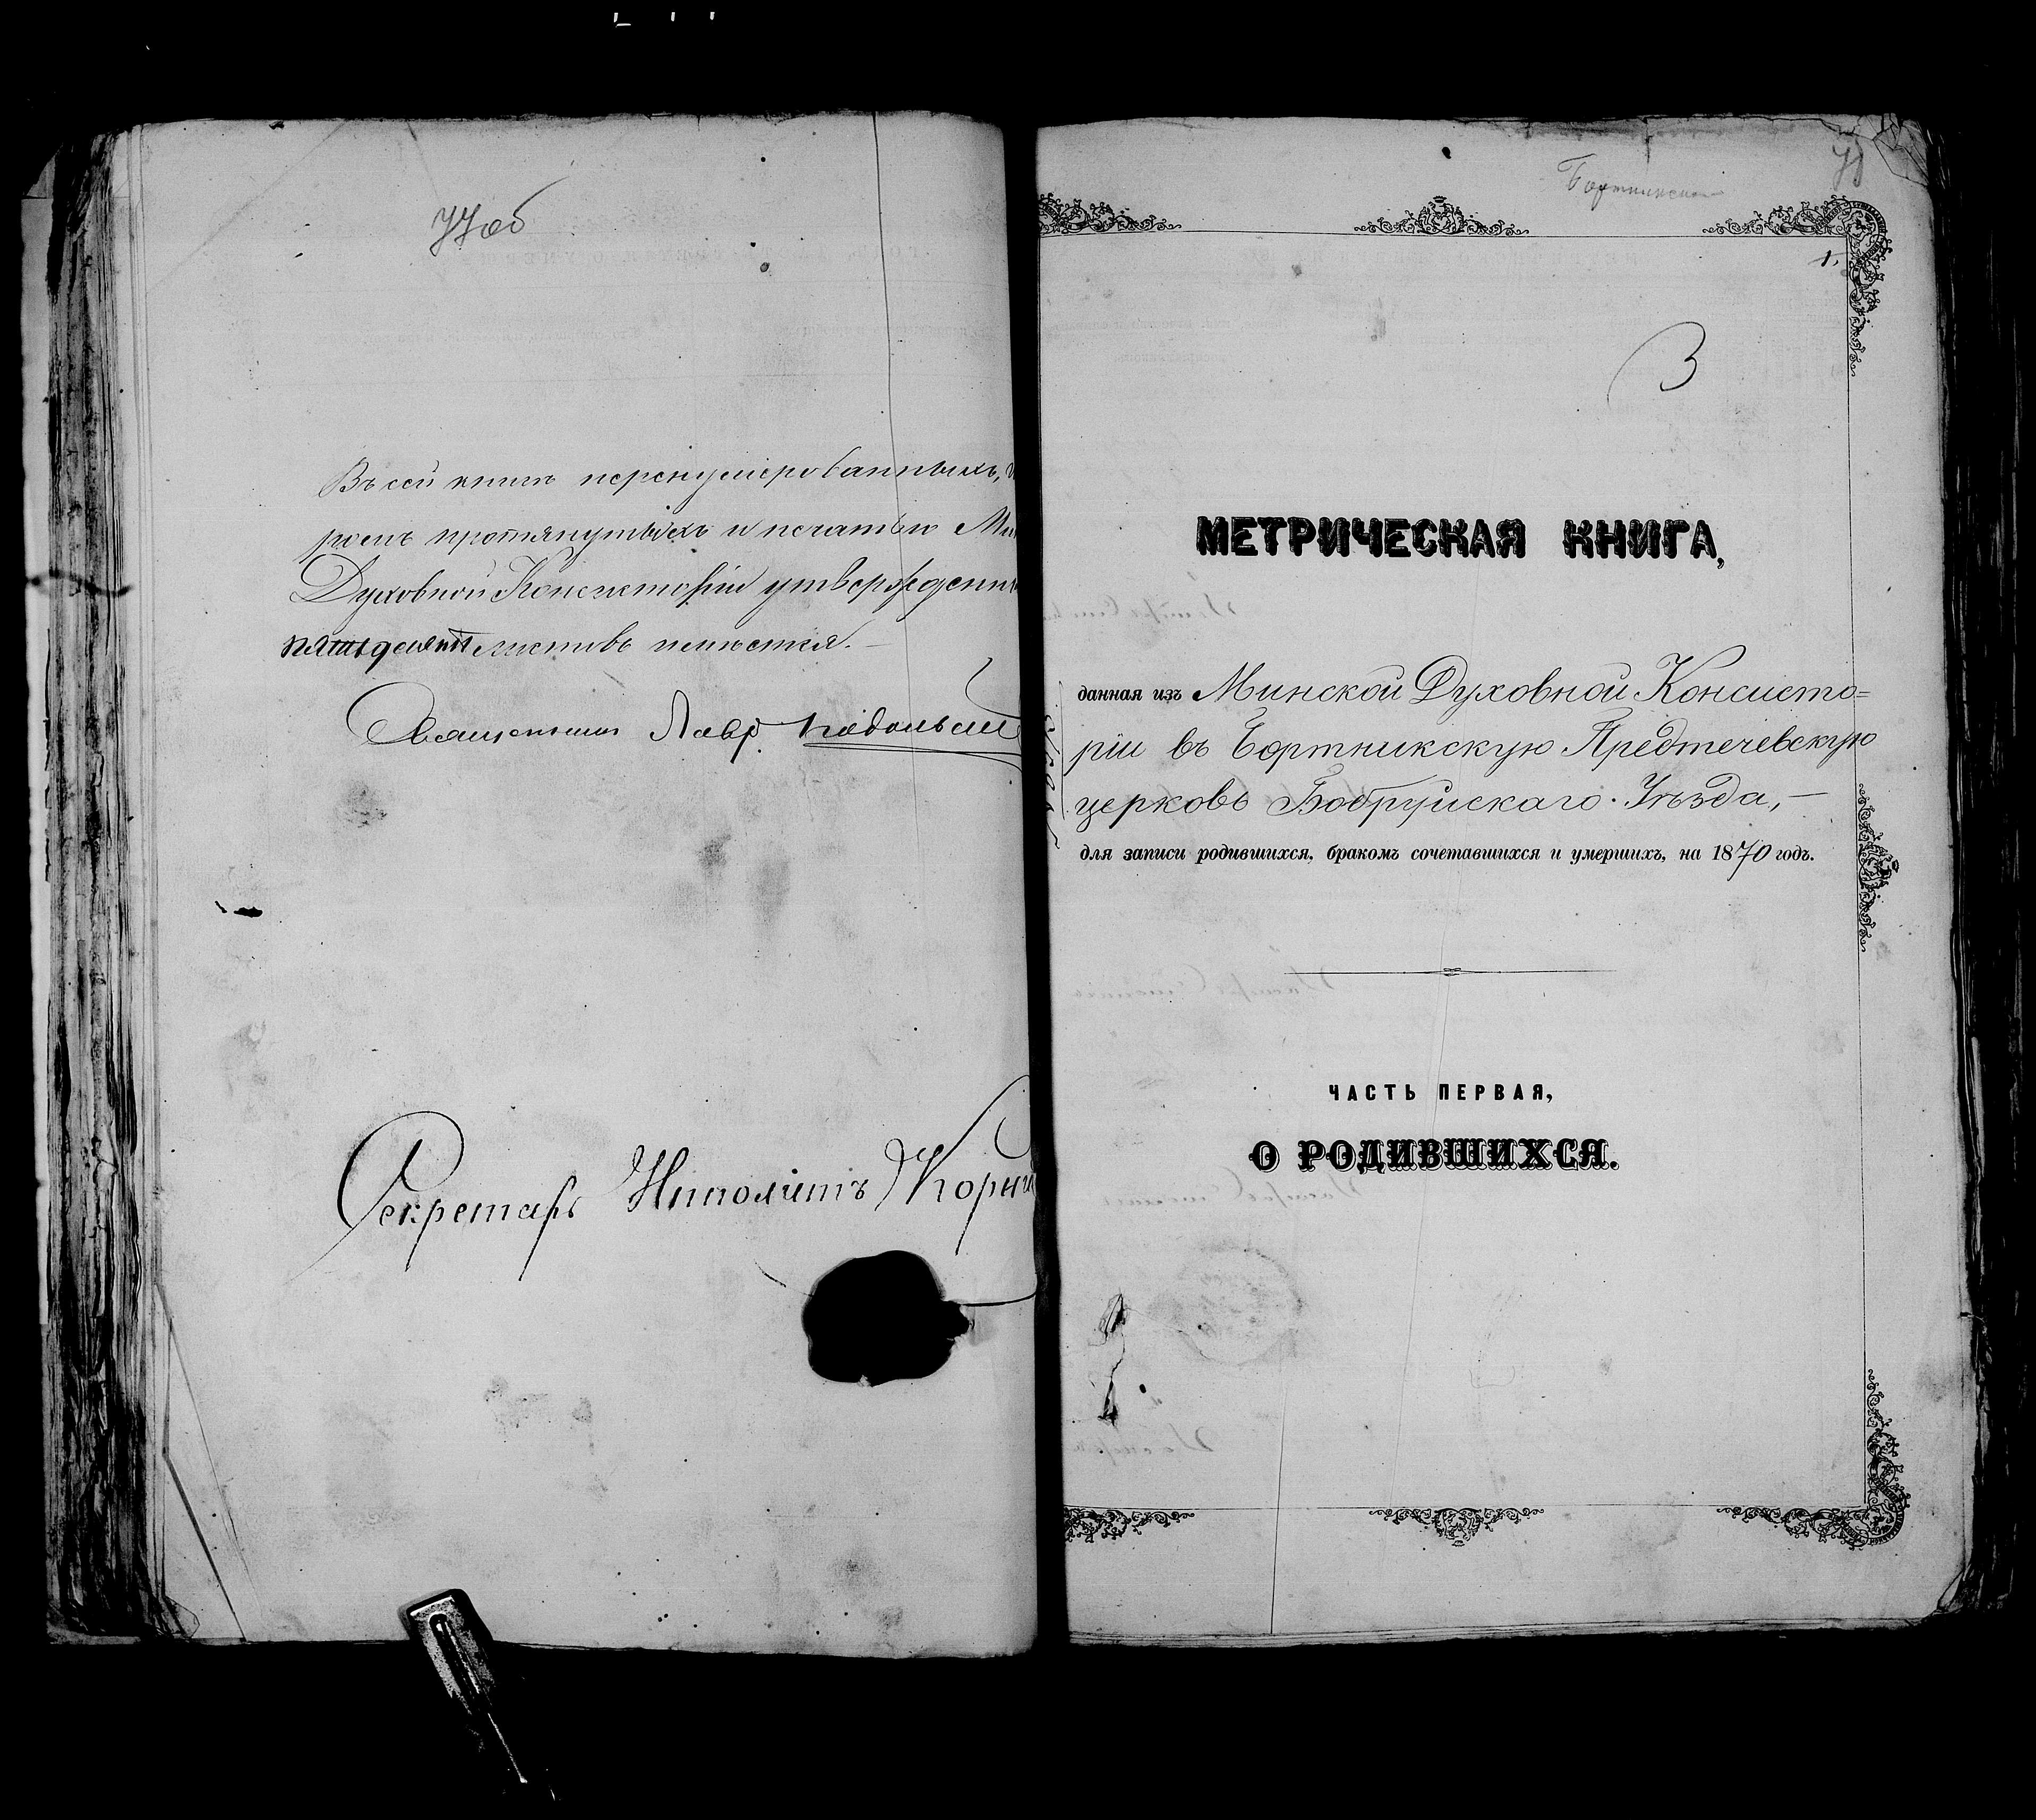 77об
Въ сей книгѣ перенумерованныхъ,
протянутыхъ и печатью
Духовной Консисторіи
листовъ имѣется.
Священникъ Лавр.
Секретарь Ипполитъ
Бортникская
78
1.
3
МЕТРИЧЕСКАЯ КНИГА,
данная изъ Минской Духовной Консисто=
ріи въ Бортникскую Предтечевскую
церковь Бобруйскаго Уѣзда,—
для записи родившихся, бракомъ сочетавшихся и умершихъ, на 1870 годъ.
ЧАСТЬ ПЕРВАЯ,
О РОДИВШИХСЯ.